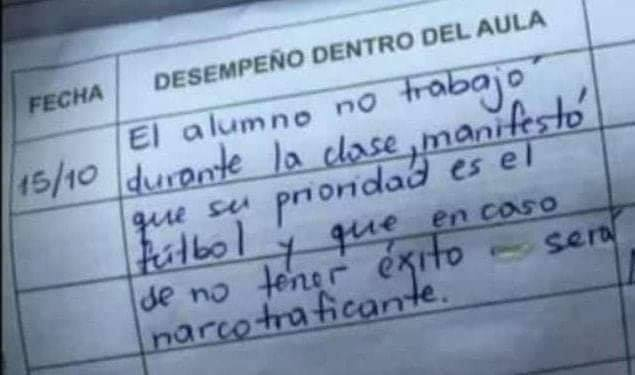 FECHA
DESEMPEÑO DENTRO DEL AULA
15/10
El alumno no trabajó
durante la clase, manifestó
que su prioridad es el
fútbol y que en caso
de no tener éxito - será
narcotraficante.